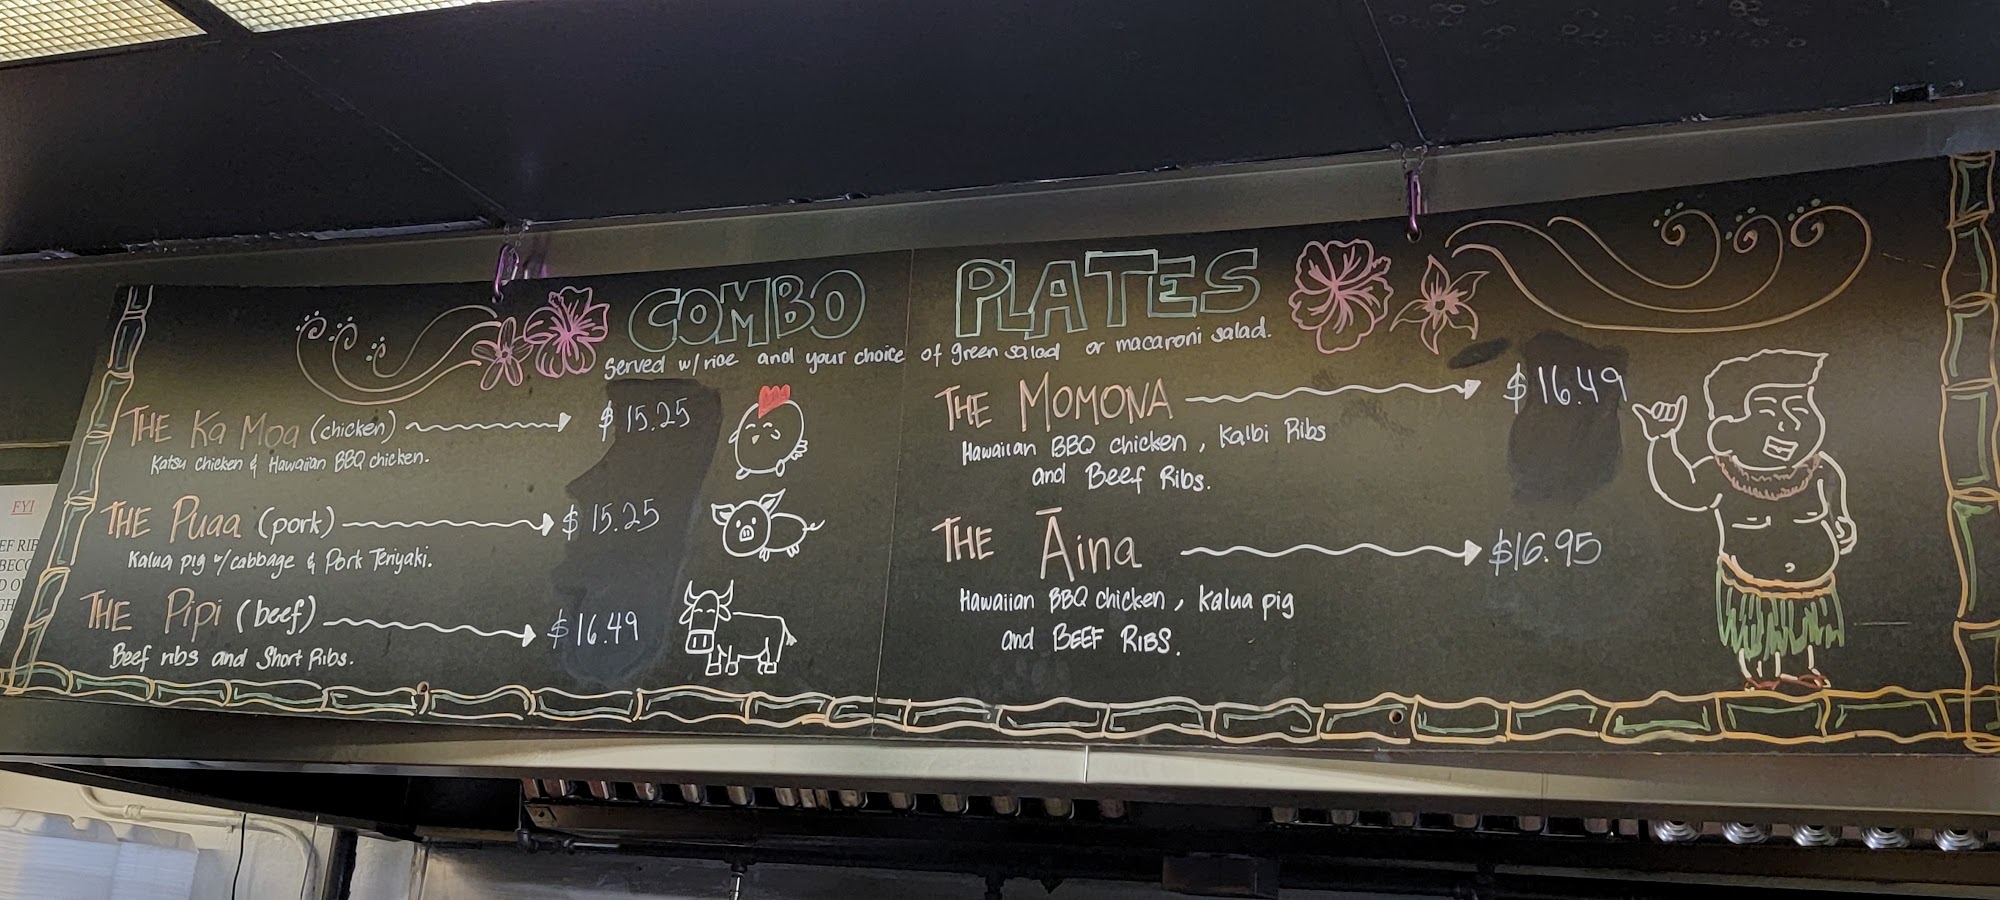 COMBO PLATES
Served w/rice and your choice of green salad or macaroni salad.
THE Ka Moa (chicken) $15.25
Katsu chicken & Hawaiian BBQ chicken.
THE Puaa (pork) $15.25
Kalua pig w/cabbage & Pork Teriyaki.
THE Pipi (beef) $16.49
Beef ribs and Short Ribs.
THE MOMONA $16.49
Hawaiian BBQ chicken, Kalbi Ribs
and Beef Ribs.
THE Āina $16.95
Hawaiian BBQ chicken, Kalua pig
and BEEF RIBS.
FYI